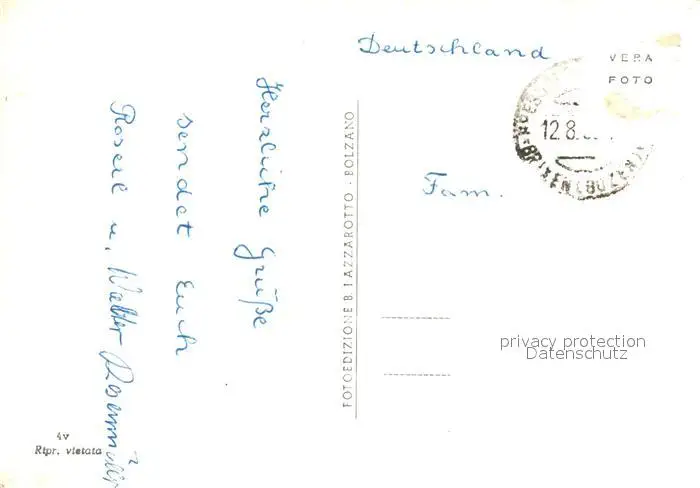 Deutschland
VERA
FOTO
12.8.
BRIXEN (BOZEN)
Herzliche Grüße
sendet Euch
u. Walter
Fam.
FOTOEDIZIONE B. LAZZAROTTO - BOLZANO
privacy protection
Datenschutz
4v
Ripr. vietata